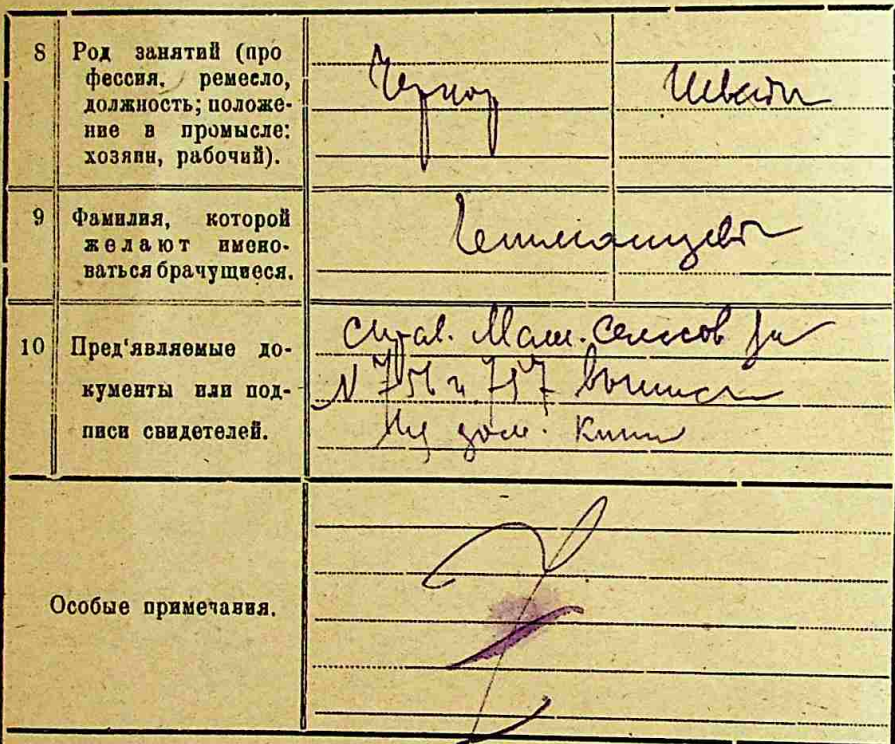 8 Род занятий (про
фессия, ремесло,
должность; положе-
ние в промысле:
хозяин, рабочий).
Чернор
9 Фамилия, которой
желают имено-
ваться брачущиеся.
10 Пред'являемые до-
кументы или под-
писи свидетелей.
Сельсов за
N 756 и 757
Из дом. Книги
Особые примечания.